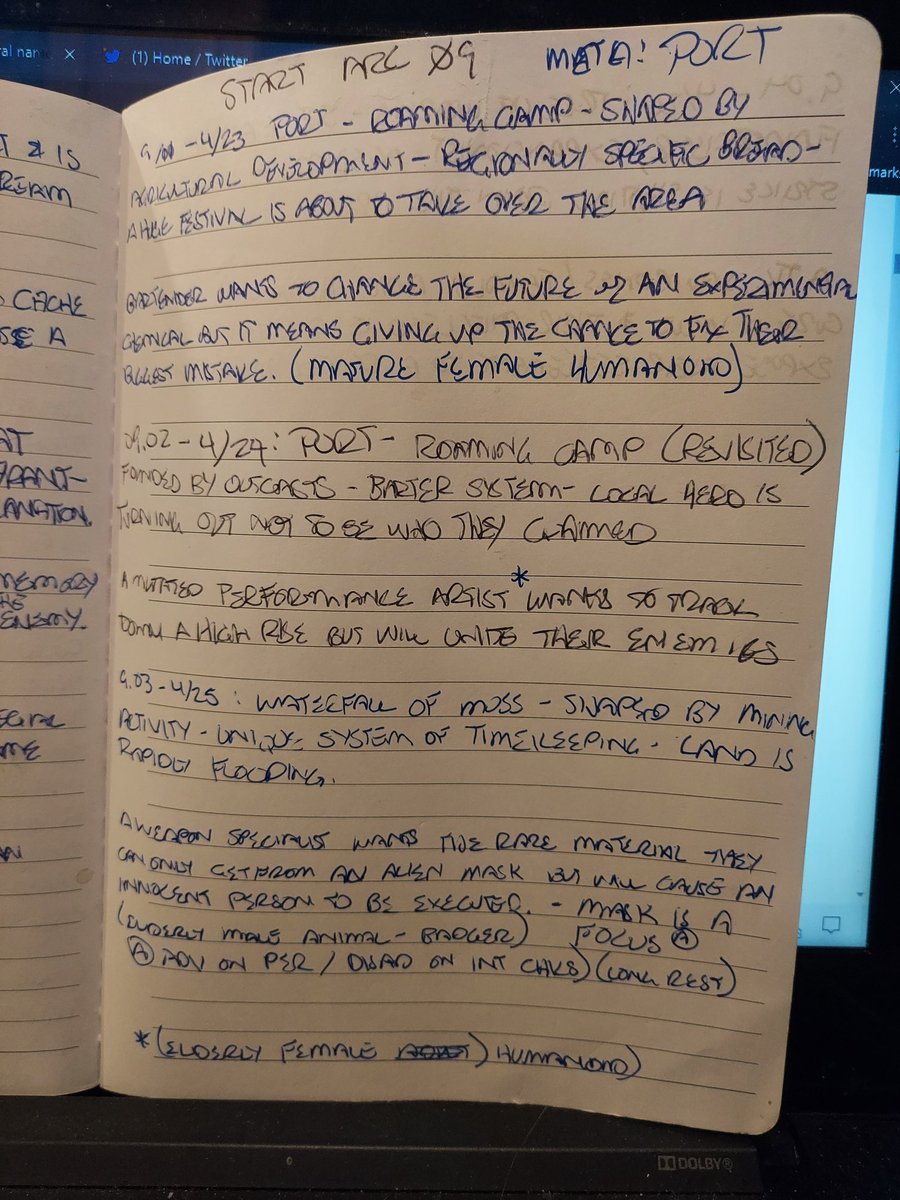 (1) Home / Twitter
START ARC Ø9 META: PORT
4/23 PORT - ROAMING CAMP - SHAPED BY
AGRICULTURAL DEVELOPMENT - REGIONALLY SPECIFIC BREAD -
A HUGE FESTIVAL IS ABOUT TO TAKE OVER THE AREA
BARTENDER WANTS TO CHANGE THE FUTURE OF AN EXPERIMENTAL
CHEMICAL BUT IT MEANS GIVING UP THE CHANCE TO FIX THEIR
BIGGEST MISTAKE. (MATURE FEMALE HUMANOID)
09.02 - 4/24: PORT - ROAMING CAMP (REVISITED)
FOUNDED BY OUTCASTS - BARTER SYSTEM - LOCAL HERO IS
TURNING OUT NOT TO BE WHO THEY CLAIMED
A MUTATED PERFORMANCE ARTIST* WANTS TO TRACK
DOWN A HIGH RISE BUT WILL UNITE THEIR ENEMIES
9.03 - 4/25: WATERFALL OF MOSS - SHAPED BY MINING
ACTIVITY - UNIQUE SYSTEM OF TIMEKEEPING - LAND IS
RAPIDLY FLOODING.
A WEAPON SPECIALIST WANTS THE RARE MATERIAL THEY
CAN ONLY GET FROM AN ALIEN MASK BUT WILL CAUSE AN
INNOCENT PERSON TO BE EXECUTED. - MASK IS A
(ELDERLY MALE ANIMAL - BADGER) FOCUS Ⓐ
Ⓐ ADV ON PER / DISAD ON INT CHKS) (LONG REST)
* (ELDERLY FEMALE ) HUMANOID)
IS
CACHE
A
MEMORY
ENEMY.
DOLBY